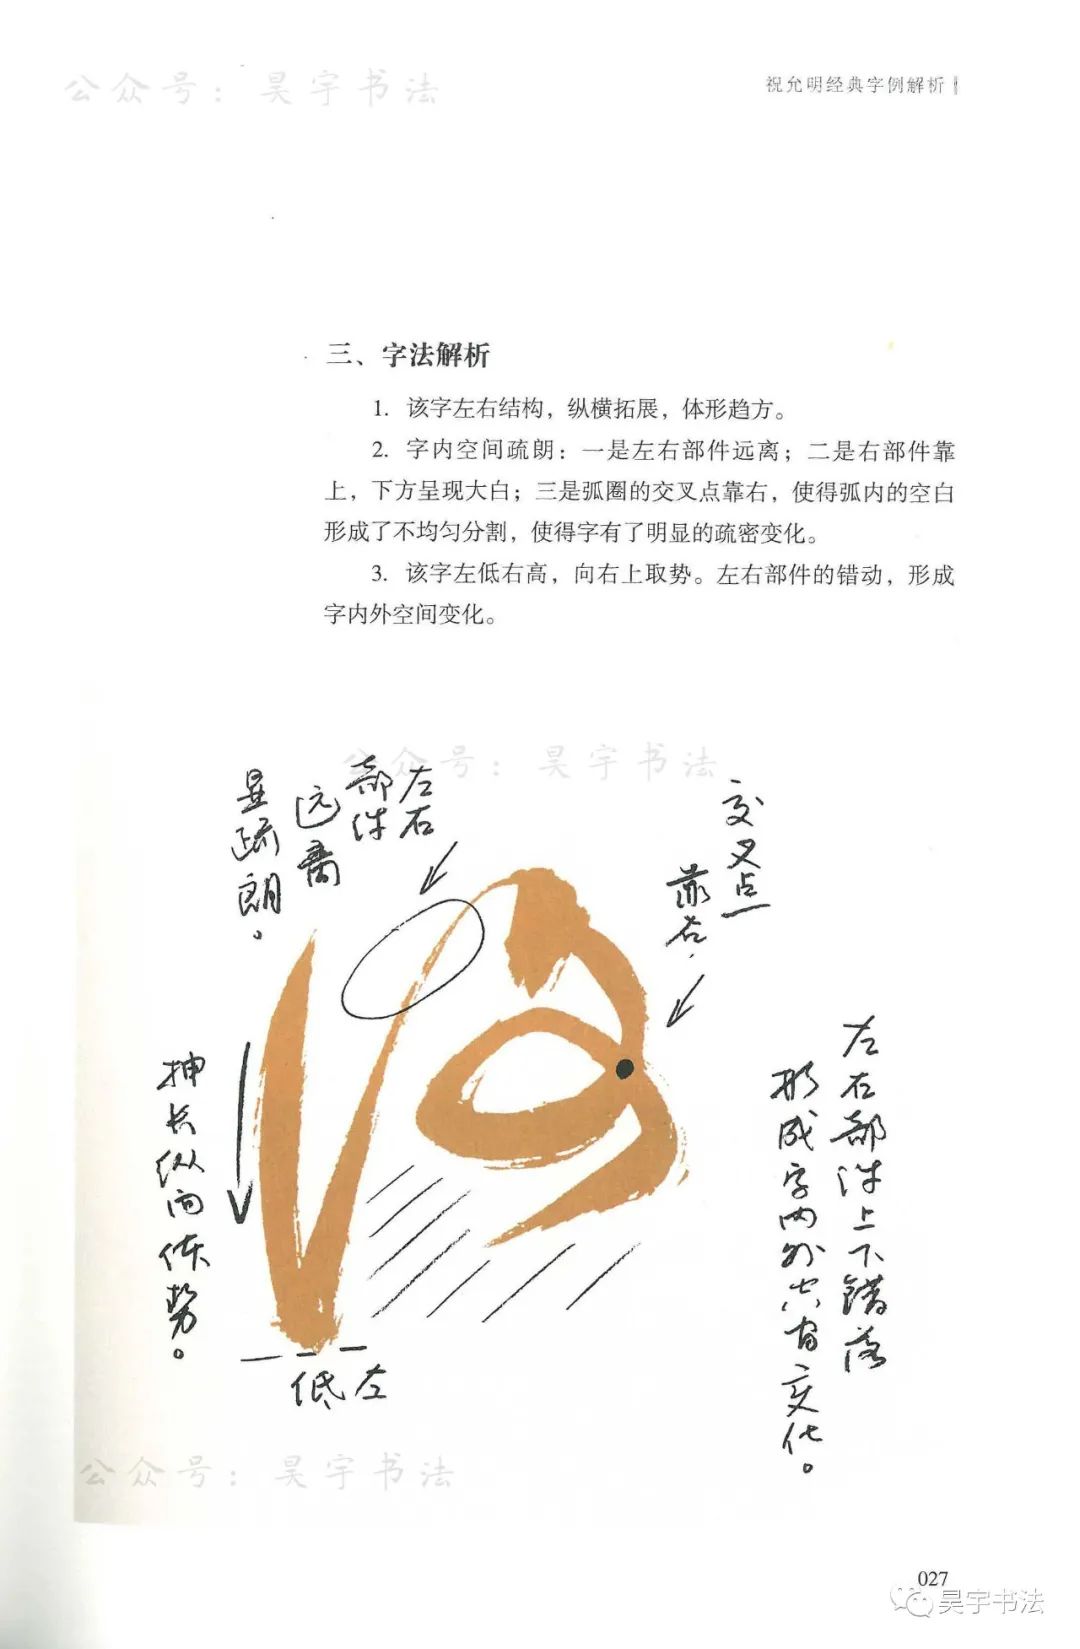 公众号：昊宇书法
祝允明经典字例解析
三、字法解析
1. 该字左右结构，纵横拓展，体形趋方。
2. 字内空间疏朗：一是左右部件远离；二是右部件靠
上，下方呈现大白；三是弧圈的交叉点靠右，使得弧内的空白
形成了不均匀分割，使得字有了明显的疏密变化。
3. 该字左低右高，向右上取势。左右部件的错动，形成
字内外空间变化。
公众号：昊宇书法
左右
部件
远离
显疏朗。
交叉点
靠右.
抻长纵向体势。
左右部件上下错落
形成字内外空间变化。
左低
公众号：昊宇书法
027
昊宇书法